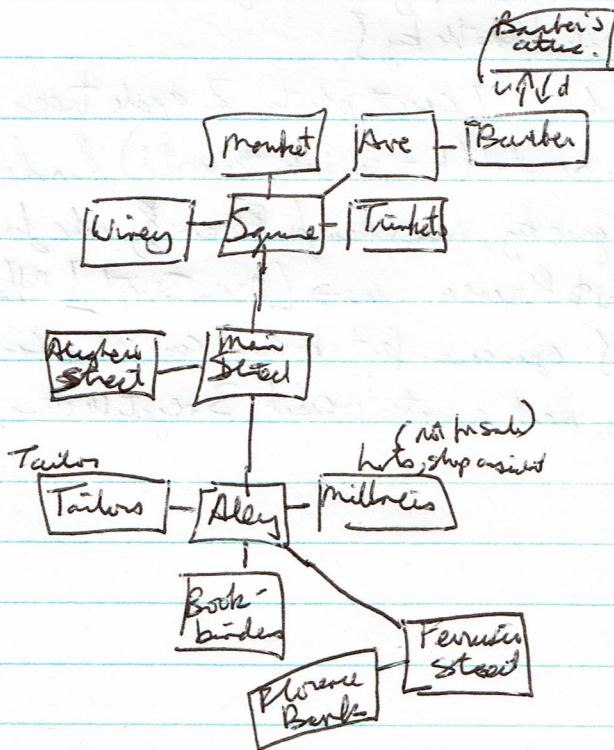 Barber's
attic.
u d
Market
Ave
Barber
Winery
Square
Trinkets
Alighieri
Street
Main
Street
(not for sale)
Tailor
hats, shop assistant
Tailors
Alley
Milliners
Book-
binders
Street
Florence
Bank